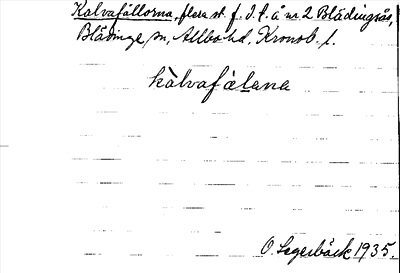 Kalvafållorna, flera st. f. d. t. å nr. 2 Blädingsås,
Blädinge sn, Allbo hd, Kronob. l.
kàlvafàlana
O. Lagerbäck 1935.